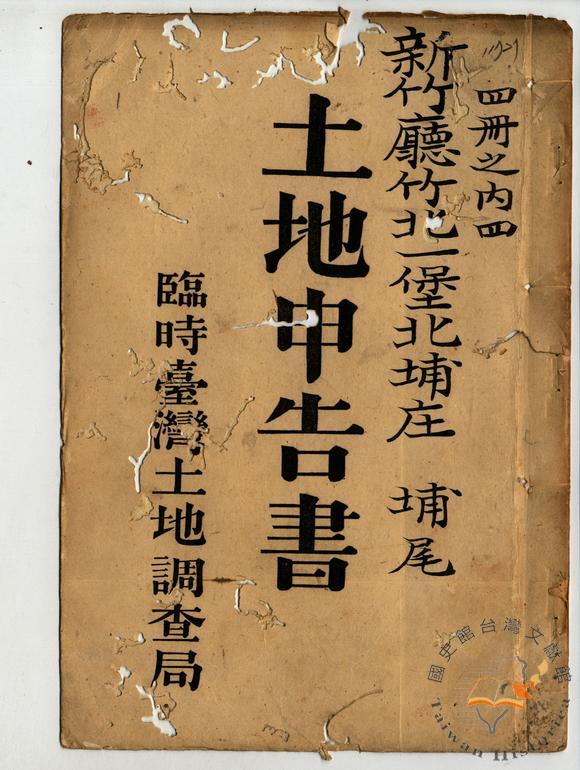 四冊之內四
新竹廳竹北一堡北埔庄 埔尾
土地申告書
臨時臺灣土地調查局
國史館台灣文獻館
Taiwan Historica